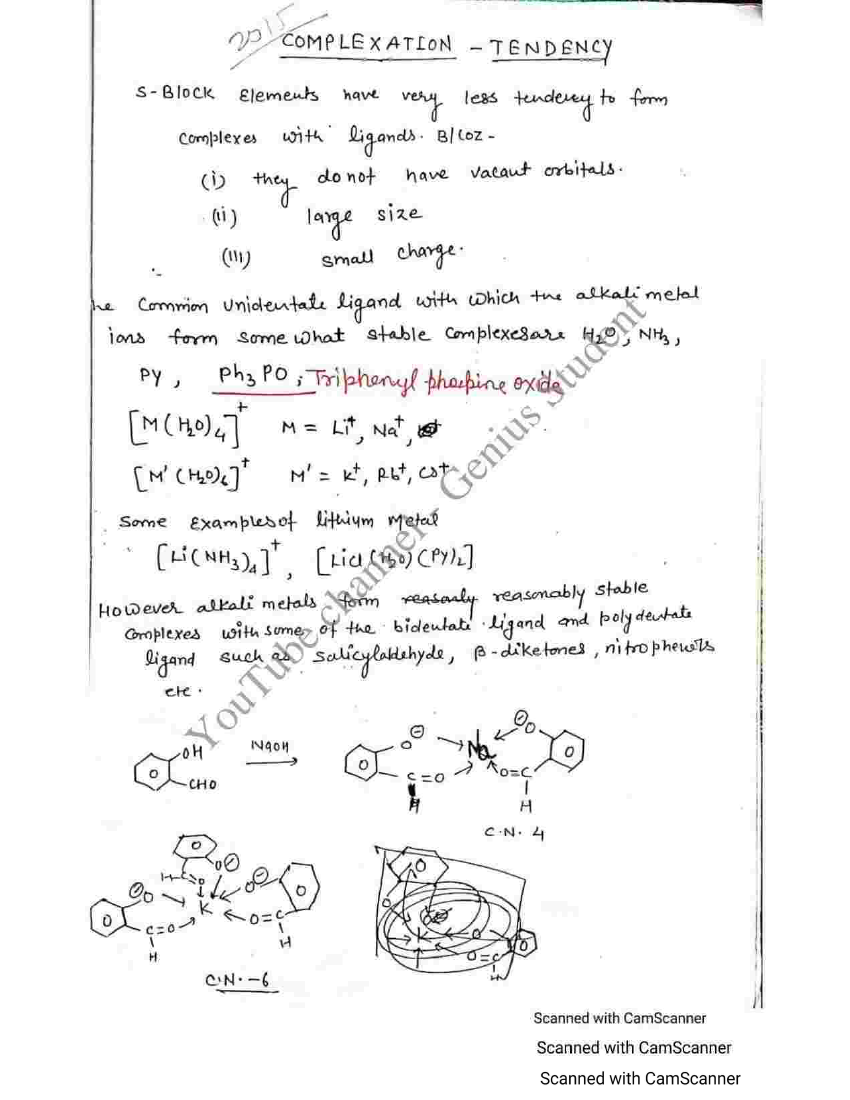 2015
COMPLEXATION - TENDENCY
S-Block Elements have very less tendecy to form
complexes with ligands. B/coz -
(i) they do not have vacant orbitals.
(ii) large size
(iii) small charge.
he Common unidentate ligand with which the alkali metal
ions form some what stable complexes are H₂O, NH₃,
PY, Ph₃PO; Triphenyl phospine oxide
[M(H₂O)₄]⁺ M = Li⁺, Na⁺,
[M'(H₂O)₆]⁺ M' = K⁺, Rb⁺, Cs⁺
Some Examples of lithium Metal
[Li(NH₃)₄]⁺, [Licl(H₂O)(PY)₂]
However alkali metals form reasonably stable
complexes with some of the bidentate ligand and polydentate
ligand such as salicylaldehyde, β-diketones, nitrophenols
etc.
OH
CHO
NaOH
O⊖ Na ⊖O
C=O O=C
H H
C.N. 4
O⊖
H-C=O
⊖O K O⊖
C=O O=C
H H
C.N. - 6
O
K O
O=C
H
YouTube channel - Genius Student
Scanned with CamScanner
Scanned with CamScanner
Scanned with CamScanner